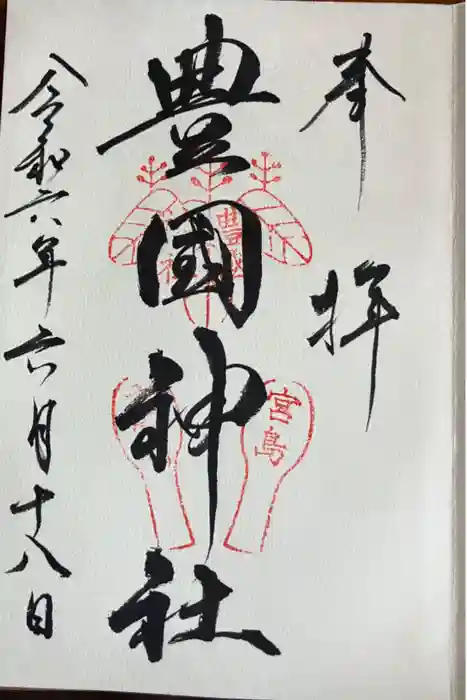 奉拝
豊國神社
令和六年六月十八日
宮島